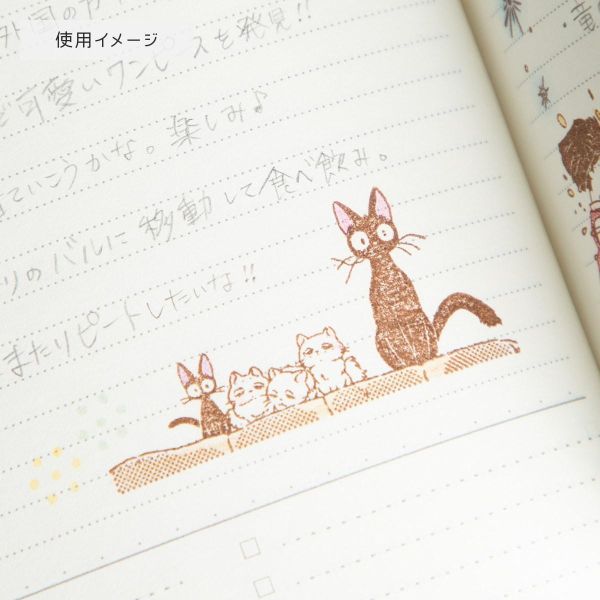 使用イメージ
外国のサイト
可愛いワンピースを発見!!
ていこうかな。楽しみ♪
りのバルに移動して食べ飲み。
またリピートしたいな!!